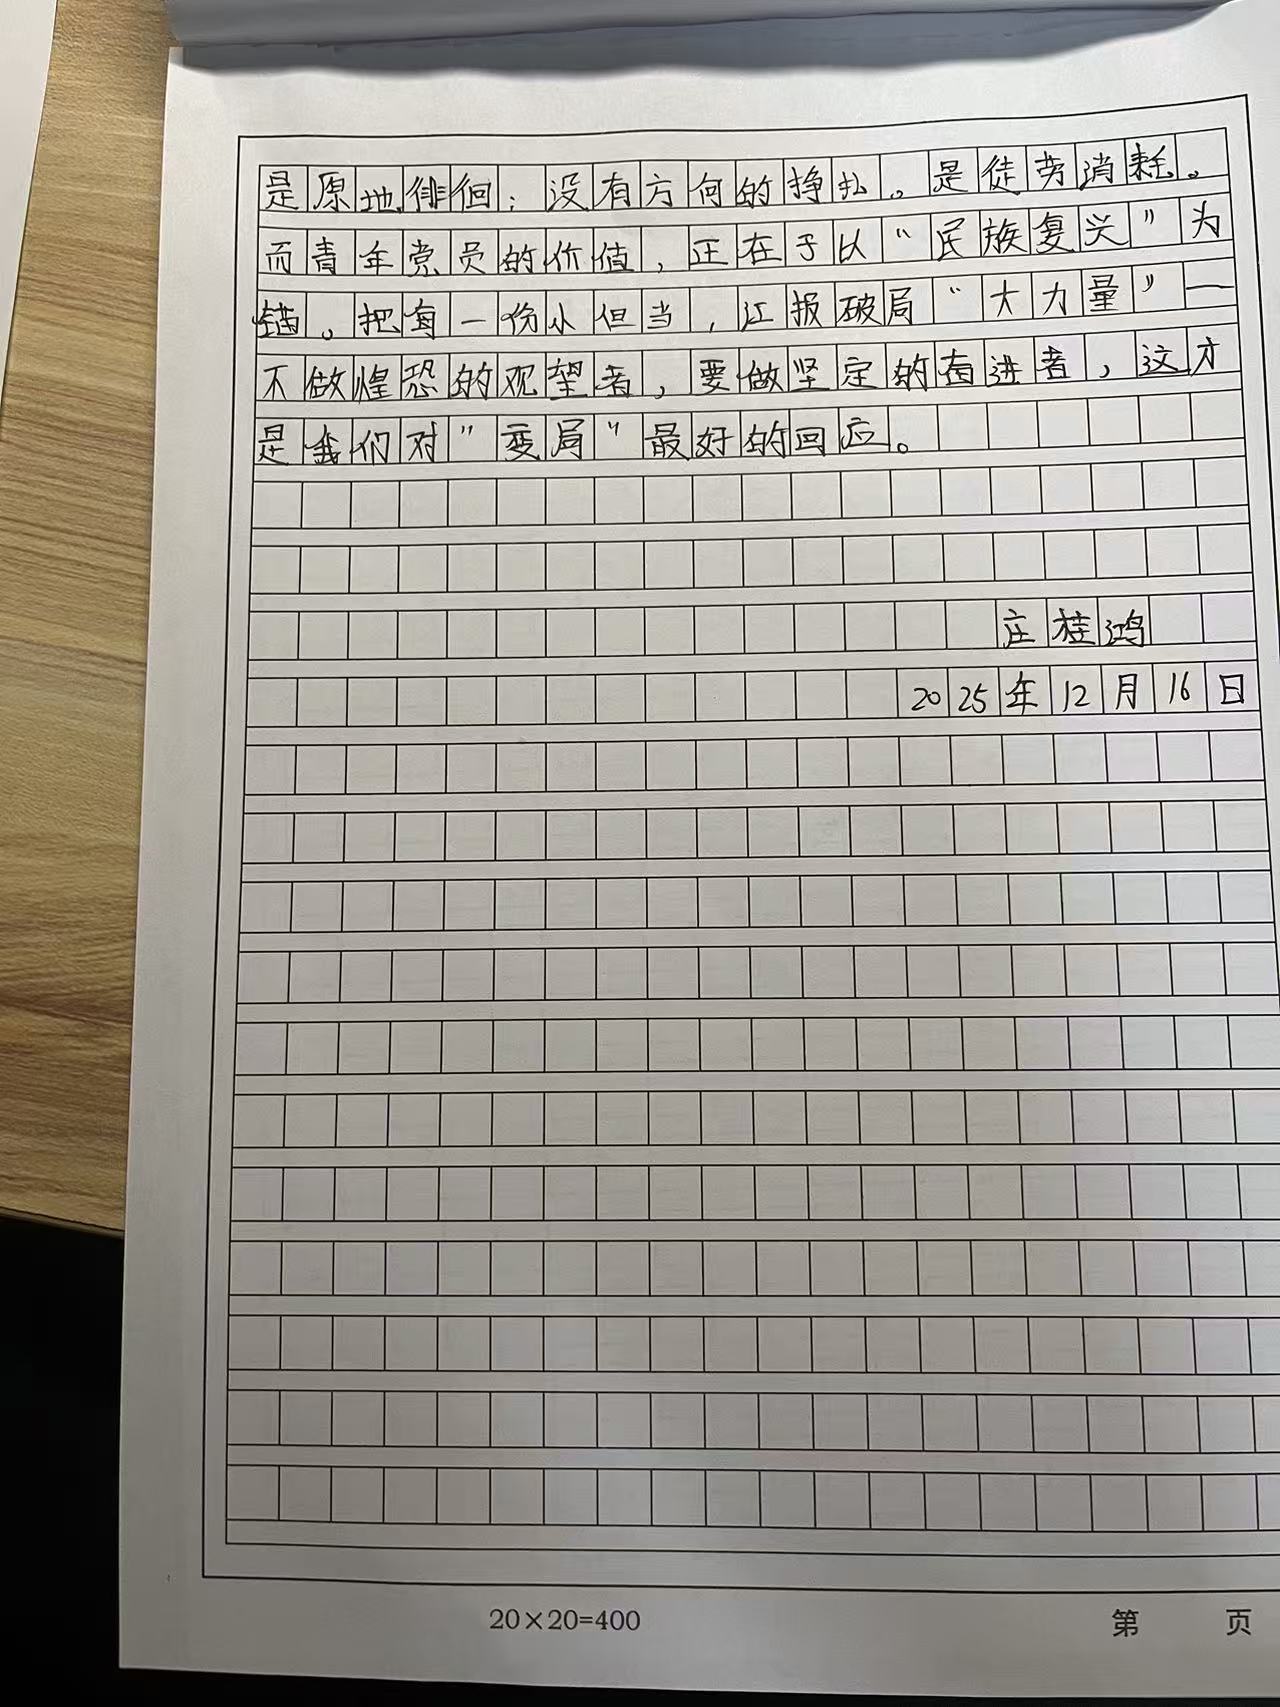 是原地徘徊；没有方向的挣扎。是徒劳消耗。
而青年党员的价值，正在于以“民族复兴”为
锚。把每一份小但当，汇报破局“大力量”一
不做惶恐的观望者，要做坚定的奋进者，这才
是我们对”变局“最好的回应。
庄桂鸿
2025年12月16日
20×20=400
第 页